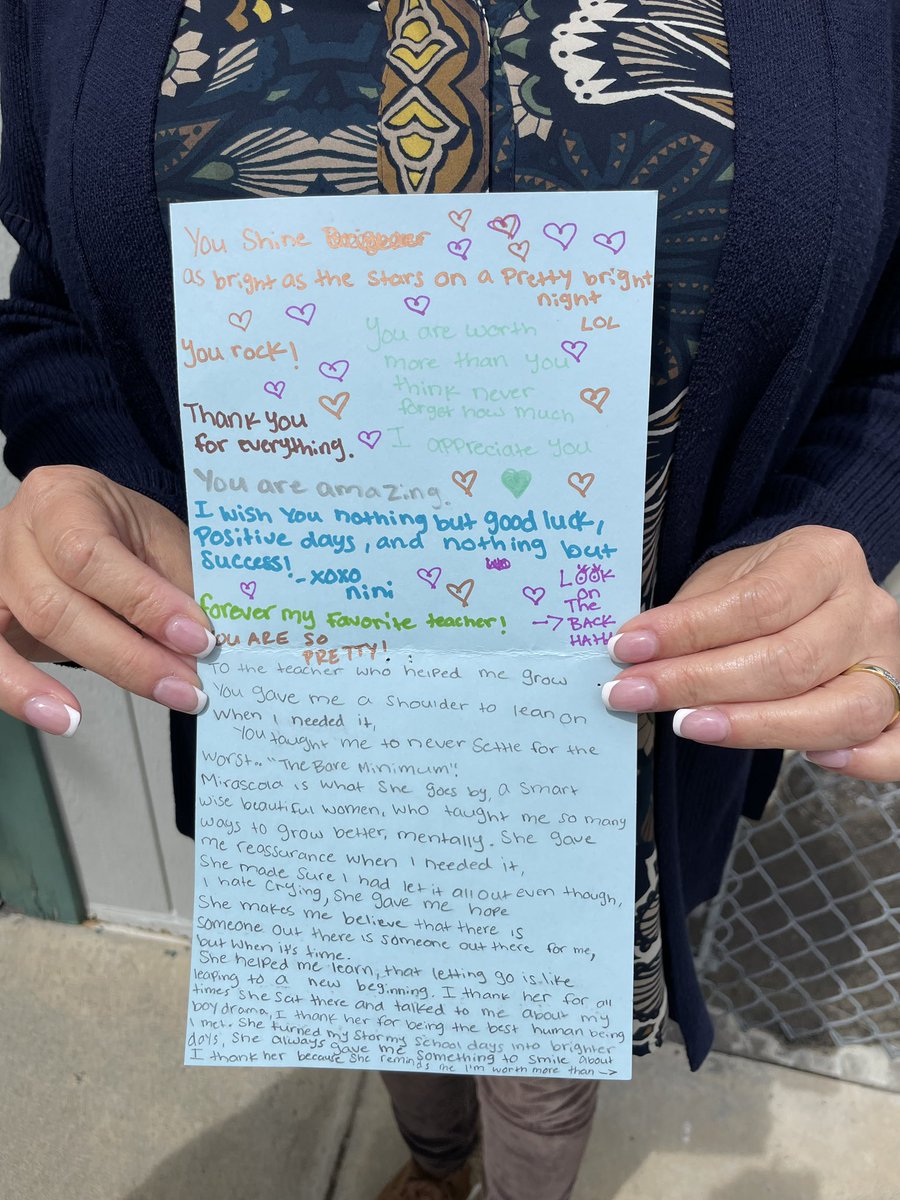 You Shine
as bright as the stars on a Pretty bright
night
LOL
You rock!
You are worth
more than you
think never
forget how much
I appreciate you
Thank you
for everything.
You are amazing.
I wish you nothing but good luck,
Positive days, and nothing but
success! -xoxo
nini
forever my favorite teacher!
YOU ARE SO
PRETTY!
LOOK
on
The
-> BACK
HAHA
To the teacher who helped me grow
You gave me a shoulder to lean on
when I needed it,
You taught me to never settle for the
worst.. "The Bare Minimum".
Mirascola is what she goes by, a smart
wise beautiful women, who taught me so many
ways to grow better, mentally. She gave
me reassurance when I needed it,
She made sure I had let it all out even though,
I hate crying, she gave me hope
She makes me believe that there is
someone out there is someone out there for me,
but when it's time.
She helped me learn, that letting go is like
leaping to a new beginning. I thank her for all
times she sat there and talked to me about my
boy drama, I thank her for being the best human being
I met. She turned my stormy school days into brighter
days, She always gave me something to smile about
I thank her because she reminds me I'm worth more than ->